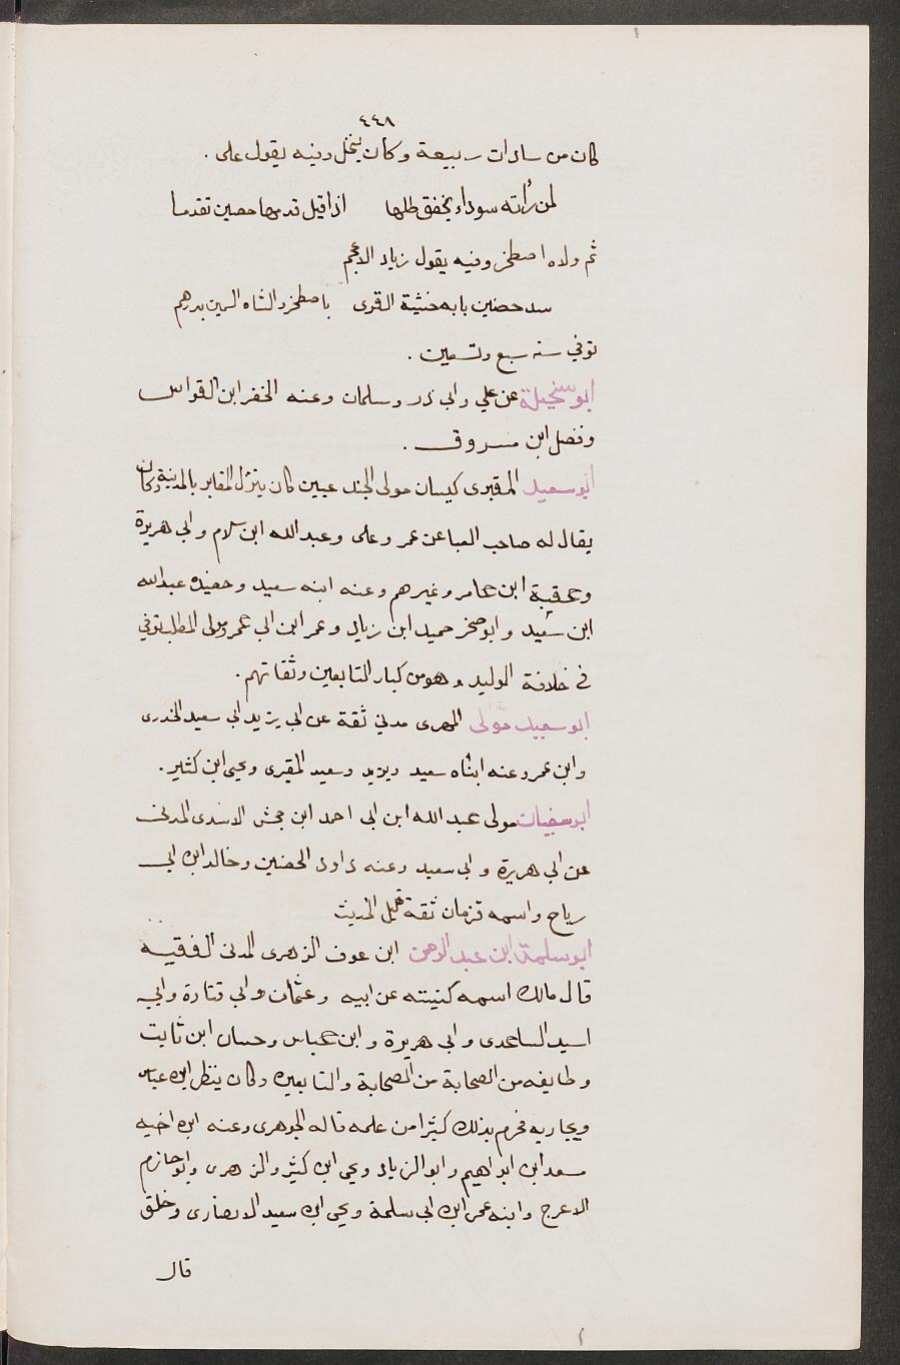 ٤٤٨
كان من سادات ربيعة وكان يبخل وفيه يقول على .
لمن رأته سوداء يخفق ظلها اذا قيل قدمها حصين تقدما
ثم ولاه اصطخر وفيه يقول زياد الاعجم
سد حضين بابه خشية القرى باصطخر والشاه السمين بدرهم
توفي سنه سبع وتسعين .
ابو سخيلة عن علي وابي ذر وسلمان وعنه الخضر ابن القواس
وفضل ابن مسروق .
ابو سعيد المقبرى كيسان مولى الجندعيين كان ينزل المقابر بالمدينة وكان
يقال له صاحب العبا عن عمر وعلى وعبد الله ابن سلام وابي هريرة
وعقبة ابن عامر وغيرهم وعنه ابنه سعيد وحفيده عبدالله
ابن سعيد وابو صخر حميد ابن زياد وعمر ابن ابي عمر ومولى المطلب توفي
في خلافة الوليد وهو من كبار التابعين وثقاتهم .
ابو سعيد مولى المهرى مدني ثقة عن ابي يزيد ابي سعيد الخدرى
وابن عمر وعنه ابناه سعيد ويزيد وسعيد المقبرى ويحيى ابن كثير .
ابو سفيان مولى عبد الله ابن ابي احمد ابن جحش الاسدى المدني
عن ابي هريرة وابي سعيد وعنه داود الحضين وخالد ابن ابي
رياح واسمه قزمان ثقة قليل الحديث
ابو سلمة ابن عبد الرحمن ابن عوف الزهرى المدني الفقيه
قال مالك اسمه كنيته عن ابيه وعثمان وابي قتادة وابي
اسيد الساعدى وابي هريرة وابن عباس وحسان ابن ثابت
وطايفه من الصحابة من الصحابة والتابعين وكان ينظر ابن عباس
ويجاريه فحرم بذلك كثيرا من علمه قاله الجوهرى وعنه ابن اخيه
سعد ابن ابراهيم وابو الزياد ويحيى ابن كثير والزهرى وابو حازم
الاعرج وابنه عمر ابن ابي سلمة ويحيى ابن سعيد الانصارى وخلق
قال